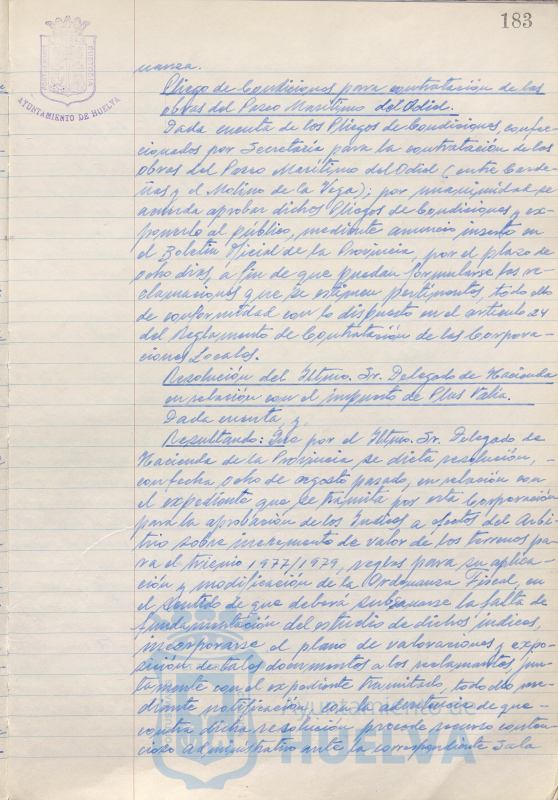 183
AYUNTAMIENTO DE HUELVA
nanza.
Pliego de Condiciones para contratación de las
obras del Paseo Marítimo del Odiel.
Dada cuenta de los Pliegos de Condiciones, confec-
cionados por Secretaría para la contratación de las
obras del Paseo Marítimo del Odiel (entre Carde-
ñas y el Molino de la Vega); por unanimidad se
acuerda aprobar dichos Pliegos de Condiciones y ex-
ponerlo al público, mediante anuncio inserto en
el Boletín Oficial de la Provincia, por el plazo de
ocho días, a fin de que puedan formularse las re-
clamaciones que se estimen pertinentes, todo ello
de conformidad con lo dispuesto en el artículo 24
del Reglamento de Contratación de las Corpora-
ciones Locales.
Resolución del Iltmo. Sr. Delegado de Hacienda
en relación con el impuesto de Plus Valía.
Dada cuenta, y
Resultando: Que por el Iltmo. Sr. Delegado de
Hacienda de la Provincia se dicta resolución, -
con fecha ocho de agosto pasado, en relación con
el expediente que se tramita por esta Corporación
para la aprobación de los Indices a efectos del Arbi-
trio sobre incremento de valor de los terrenos pa-
ra el trienio 1977/1979, reglas para su aplica-
ción y modificación de la Ordenanza Fiscal, en
el sentido de que deberá subsanarse la falta de
fundamentación del estudio de dichos índices,
incorporarse el plano de valoraciones y expo-
sición de tales documentos a los reclamantes, jun-
tamente con el expediente tramitado, todo ello me-
diante notificación, con la advertencia de que -
contra dicha resolución procede recurso conten-
cioso administrativo ante la correspondiente Sala
HUELVA